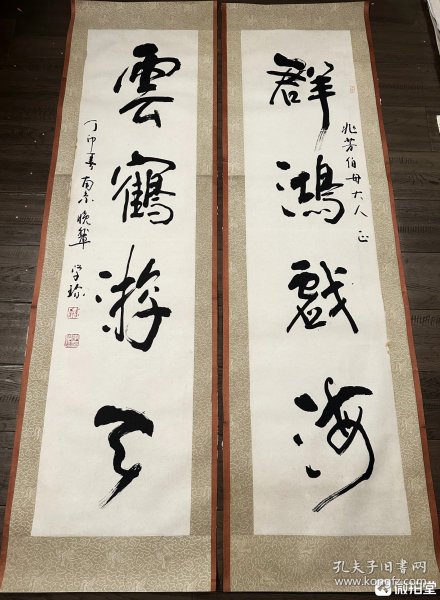 群鴻戲海
兆芳伯母大人 正
雲鶴游天
丁卯春 南京 晚輩 学
孔夫子旧书网
www.kongfz.com
微拍堂